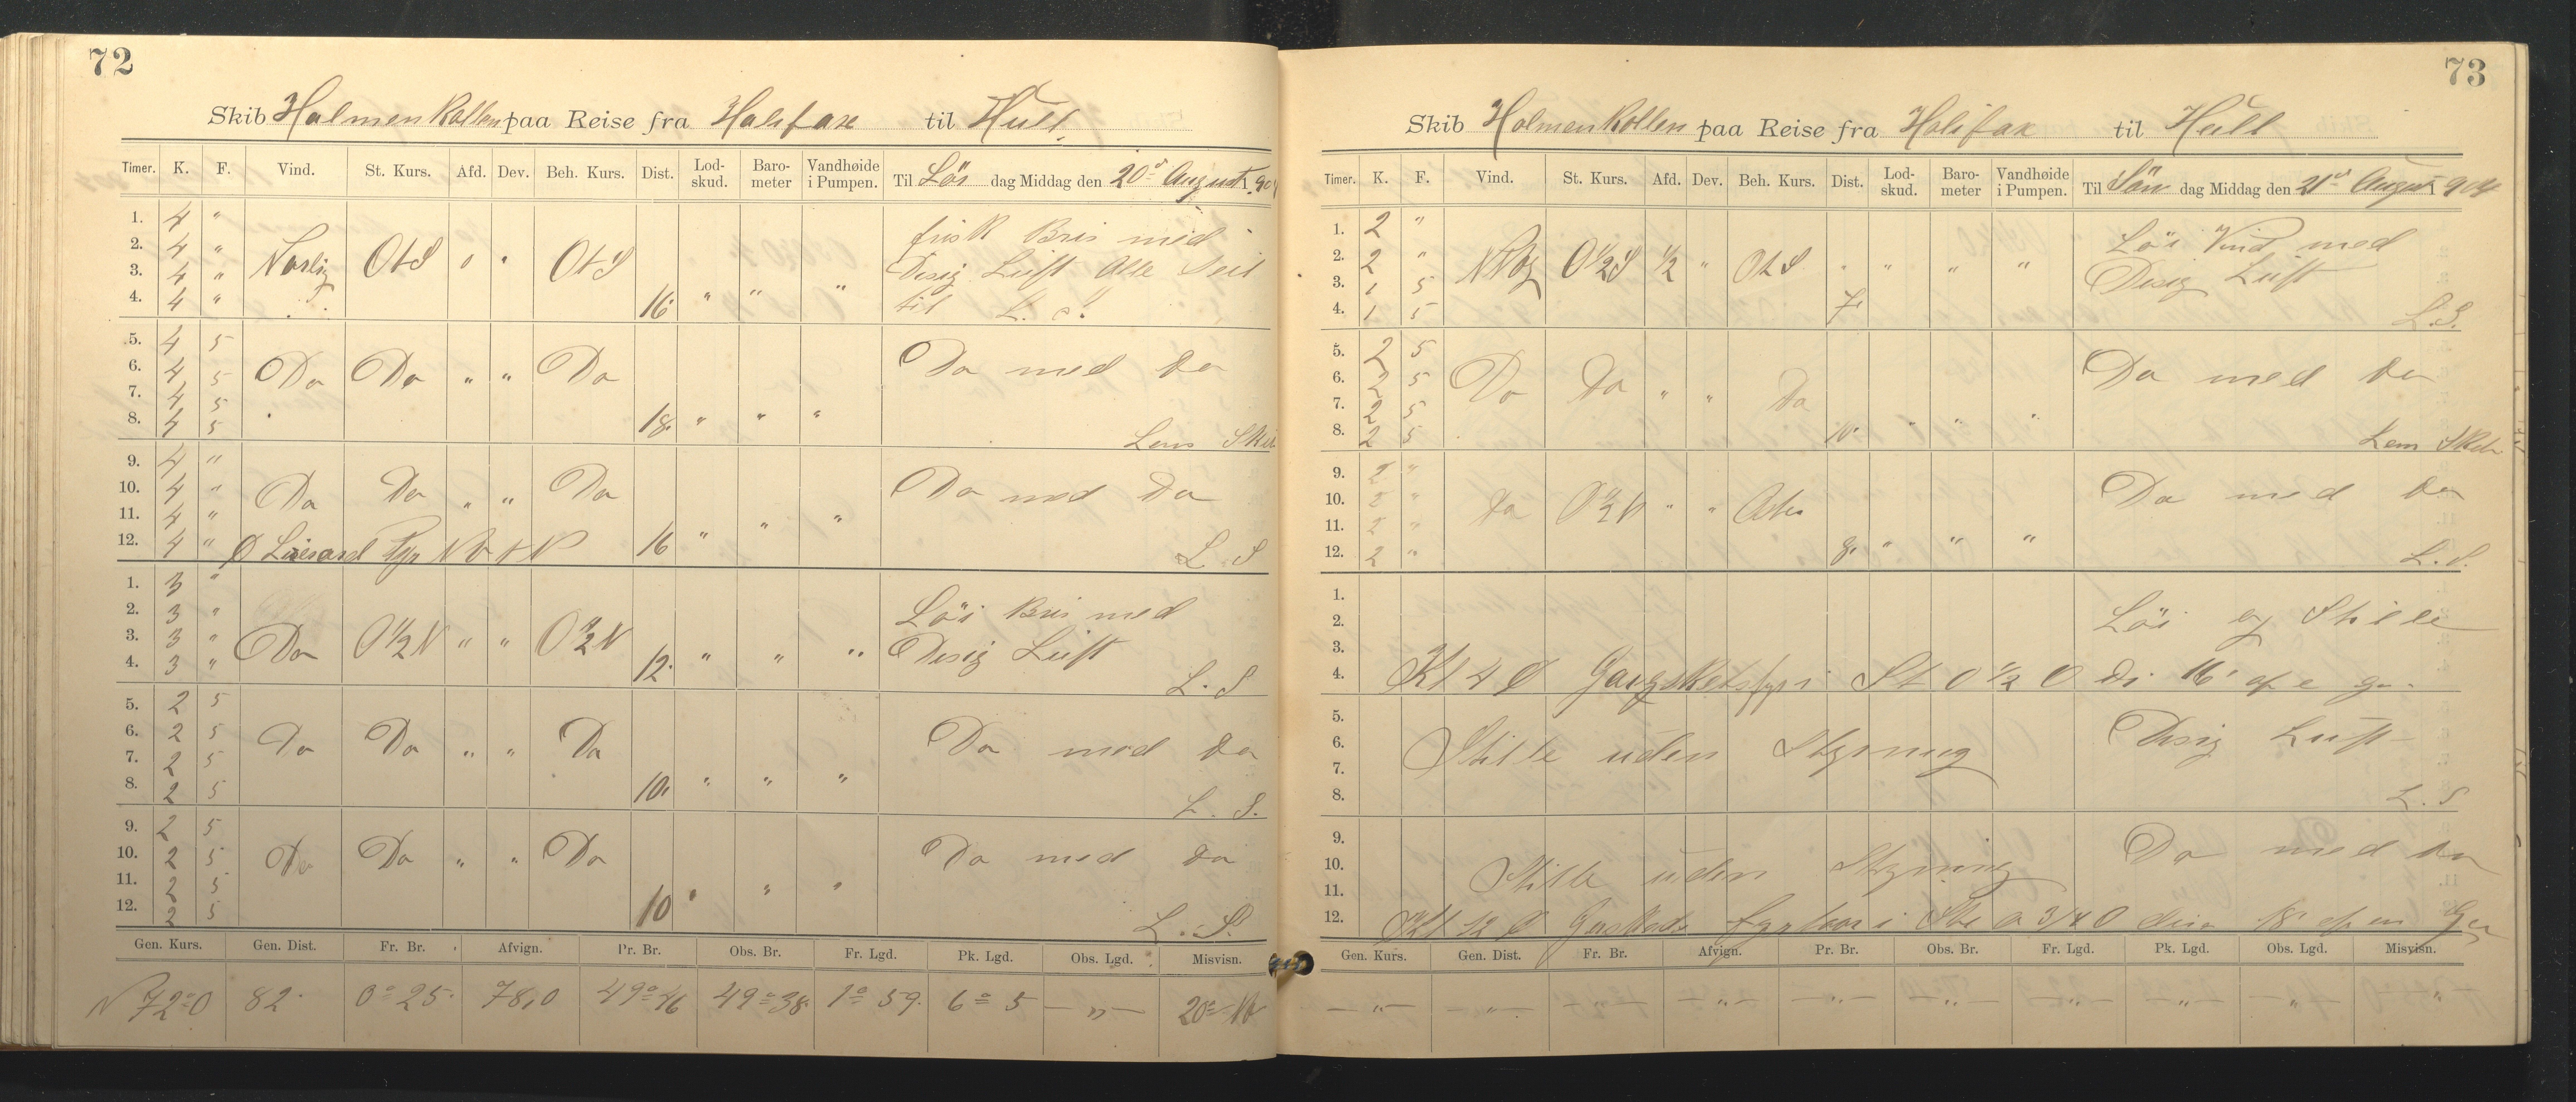 72
Skib Holmenkollen paa Reise fra Halifax til Hull.
Timer. K. F. Vind. St. Kurs. Afd. Dev. Beh. Kurs. Dist. Lod-skud. Baro-meter Vandhøide i Pumpen. Til Lör dag Middag den 20de August 1904
1. 4 "
2. 4 " frisk Bris med
3. 4 " Norlig OtS " " OtS Disig Luft Alle Seil
4. 4 " 16 " " " til L. S.
5. 4 5
6. 4 5 Do Do " " Do Do med Do
7. 4 5
8. 4 5 18. " " " Lens Skib
9. 4 "
10. 4 " Do Do " " Do Do med Do
11. 4 "
12. 4 " 16 " " " L. S
1. 3 "
2. 3 " Löi Bris med
3. 3 " Do O 1/2 N " " O 1/2 N Disig Luft
4. 3 " 12. " " " L. S
5. 2 5
6. 2 5 Do Do " " Do Do med Do
7. 2 5
8. 2 5 10. " " " L. S.
9. 2 5
10. 2 5 Do Do " " Do Do med Do
11. 2 5
12. 2 5 10 " " " L. S.
Gen. Kurs. Gen. Dist. Fr. Br. Afvign. Pr. Br. Obs. Br. Fr. Lgd. Pk. Lgd. Obs. Lgd. Misvisn.
N 72° O 82. 0° 25. 78,0 49° 46 49° 38. 1° 59. 6° 5 — " — 20° Nv
73
Skib Holmenkollen paa Reise fra Halifax til Hull
Timer. K. F. Vind. St. Kurs. Afd. Dev. Beh. Kurs. Dist. Lod-skud. Baro-meter Vandhøide i Pumpen. Til Sön dag Middag den 21de August 1904
1. 2 " Löi Vind med
2. 2 " O 1/2 S 1/2 " OtS " " " " Disig Luft
3. 1 5
4. 1 5 7. L. S.
5. 2 5
6. 2 5 Do Do " " Do Do med Do
7. 2 5
8. 2 5 10. " " " Lens Skib
9. 2 "
10. 2 " Do O 1/2 N " " Do med Do
11. 2 "
12. 2 " 8. " " " L. S.
1.
2. Löi og Stille
3.
4. Kl 4
5.
6. Stille uden Styring Disig Luft
7.
8. L. S
9.
10. Stille uden Styring Do med Do
11.
12. Kl 12
Gen. Kurs. Gen. Dist. Fr. Br. Afvign. Pr. Br. Obs. Br. Fr. Lgd. Pk. Lgd. Obs. Lgd. Misvisn.
— " — — " — — " — — " — — " — — " — — " — — " — — " — "